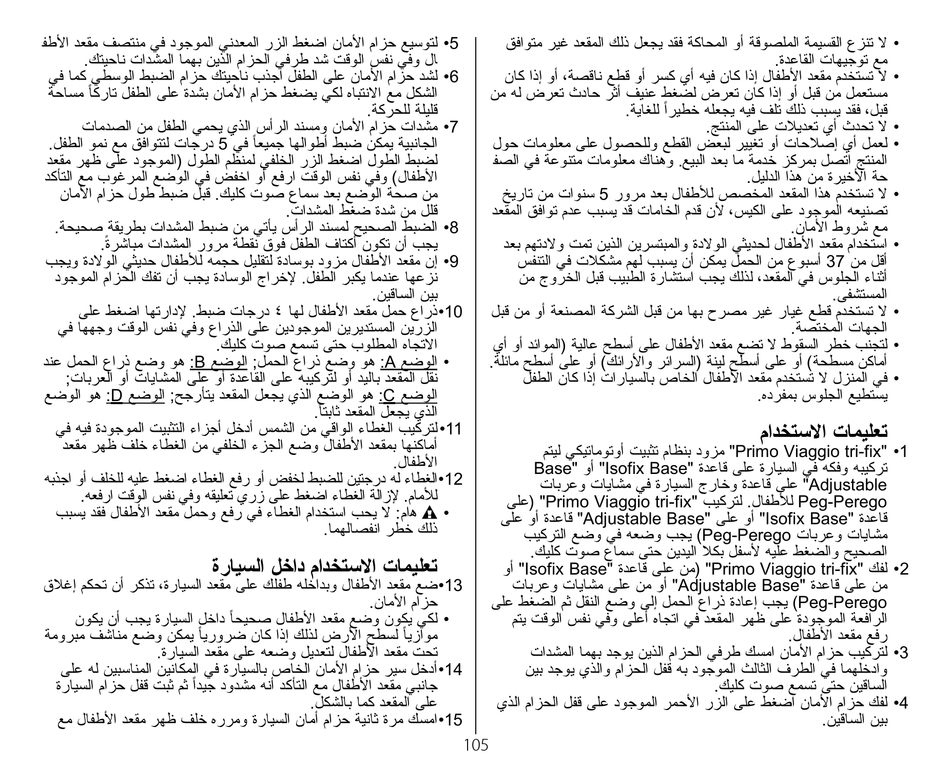 • لا تنزع القسيمة الملصوقة أو المحاكة فقد يجعل ذلك المقعد غير متوافق
مع توجيهات القاعدة.
• لا تستخدم مقعد الأطفال إذا كان فيه أي كسر أو قطع ناقصة، أو إذا كان
مستعمل من قبل أو إذا كان تعرض لضغط عنيف أثر حادث تعرض له من
قبل، فقد يسبب ذلك تلف فيه يجعله خطيراً للغاية.
• لا تحدث أي تعديلات على المنتج.
• لعمل أي إصلاحات أو تغيير لبعض القطع وللحصول على معلومات حول
المنتج اتصل بمركز خدمة ما بعد البيع. وهناك معلومات متنوعة في الصف
حة الأخيرة من هذا الدليل.
• لا تستخدم هذا المقعد المخصص للأطفال بعد مرور 5 سنوات من تاريخ
تصنيعه الموجود على الكيس، لأن قدم الخامات قد يسبب عدم توافق المقعد
مع شروط الأمان.
• استخدام مقعد الأطفال لحديثي الولادة والمبتسرين الذين تمت ولادتهم بعد
أقل من 37 أسبوع من الحمل يمكن أن يسبب لهم مشكلات في التنفس
أثناء الجلوس في المقعد، لذلك يجب استشارة الطبيب قبل الخروج من
المستشفى.
• لا تستخدم قطع غيار غير مصرح بها من قبل الشركة المصنعة أو من قبل
الجهات المختصة.
• لتجنب خطر السقوط لا تضع مقعد الأطفال على أسطح عالية (الموائد أو أي
أماكن مسطحة) أو على أسطح لينة (السرائر والأرائك) أو على أسطح مائلة.
• في المنزل لا تستخدم مقعد الأطفال الخاص بالسيارات إذا كان الطفل
يستطيع الجلوس بمفرده.
تعليمات الاستخدام
1• "Primo Viaggio tri-fix" مزود بنظام تثبيت أوتوماتيكي ليتم
تركيبه وفكه في السيارة على قاعدة "Isofix Base" أو "Base
Adjustable" على قاعدة وخارج السيارة في مشايات وعربات
Peg-Perego للأطفال. لتركيب "Primo Viaggio tri-fix" (على
قاعدة "Isofix Base" أو على "Adjustable Base" قاعدة أو على
مشايات وعربات Peg-Perego) يجب وضعه في وضع التركيب
الصحيح والضغط عليه لأسفل بكلا اليدين حتى سماع صوت كليك.
2• لفك "Primo Viaggio tri-fix" (من على قاعدة "Isofix Base" أو
من على قاعدة "Adjustable Base" أو من على مشايات وعربات
Peg-Perego) يجب إعادة ذراع الحمل إلى وضع النقل ثم الضغط على
الرافعة الموجودة على ظهر المقعد في اتجاه أعلى وفي نفس الوقت يتم
رفع مقعد الأطفال.
3• لتركيب حزام الأمان امسك طرفي الحزام الذين يوجد بهما المشدات
وادخلهما في الطرف الثالث الموجود به قفل الحزام والذي يوجد بين
الساقين حتى تسمع صوت كليك.
4• لفك حزام الأمان اضغط على الزر الأحمر الموجود على قفل الحزام الذي
بين الساقين.
5• لتوسيع حزام الأمان اضغط الزر المعدني الموجود في منتصف مقعد الأطف
ال وفي نفس الوقت شد طرفي الحزام الذين بهما المشدات ناحيتك.
6• لشد حزام الأمان على الطفل أجذب ناحيتك حزام الضبط الوسطي كما في
الشكل مع الانتباه لكي يضغط حزام الأمان بشدة على الطفل تاركاً مساحة
قليلة للحركة.
7• مشدات حزام الأمان ومسند الرأس الذي يحمي الطفل من الصدمات
الجانبية يمكن ضبط أطوالها جميعاً في 5 درجات لتتوافق مع نمو الطفل.
لضبط الطول اضغط الزر الخلفي لمنظم الطول (الموجود على ظهر مقعد
الأطفال) وفي نفس الوقت ارفع أو اخفض في الوضع المرغوب مع التأكد
من صحة الوضع بعد سماع صوت كليك. قبل ضبط طول حزام الأمان
قلل من شدة ضغط المشدات.
8• الضبط الصحيح لمسند الرأس يأتي من ضبط المشدات بطريقة صحيحة.
يجب أن تكون أكتاف الطفل فوق نقطة مرور المشدات مباشرةً.
9• إن مقعد الأطفال مزود بوسادة لتقليل حجمه للأطفال حديثي الولادة ويجب
نزعها عندما يكبر الطفل. لإخراج الوسادة يجب أن تفك الحزام الموجود
بين الساقين.
10•ذراع حمل مقعد الأطفال لها ٤ درجات ضبط. لإدارتها اضغط على
الزرين المستديرين الموجودين على الذراع وفي نفس الوقت وجهها في
الاتجاه المطلوب حتى تسمع صوت كليك.
• الوضع A: هو وضع ذراع الحمل; الوضع B: هو وضع ذراع الحمل عند
نقل المقعد باليد أو لتركيبه على القاعدة أو على المشايات أو العربات;
الوضع C: هو الوضع الذي يجعل المقعد يتأرجح; الوضع D: هو الوضع
الذي يجعل المقعد ثابتاً.
11•لتركيب الغطاء الواقي من الشمس أدخل أجزاء التثبيت الموجودة فيه في
أماكنها بمقعد الأطفال وضع الجزء الخلفي من الغطاء خلف ظهر مقعد
الأطفال.
12•الغطاء له درجتين للضبط لخفض أو رفع الغطاء اضغط عليه للخلف أو اجذبه
للأمام. لإزالة الغطاء اضغط على زري تعليقه وفي نفس الوقت ارفعه.
• ⚠ هام: لا يجب استخدام الغطاء في رفع وحمل مقعد الأطفال فقد يسبب
ذلك خطر انفصالهما.
تعليمات الاستخدام داخل السيارة
13•ضع مقعد الأطفال وبداخله طفلك على مقعد السيارة، تذكر أن تحكم إغلاق
حزام الأمان.
• لكي يكون وضع مقعد الأطفال صحيحاً داخل السيارة يجب أن يكون
موازياً لسطح الأرض لذلك إذا كان ضرورياً يمكن وضع مناشف مبرومة
تحت مقعد الأطفال لتعديل وضعه على مقعد السيارة.
14•أدخل سير حزام الأمان الخاص بالسيارة في المكانين المناسبين له على
جانبي مقعد الأطفال مع التأكد أنه مشدود جيداً ثم ثبت قفل حزام السيارة
على المقعد كما بالشكل.
15•امسك مرة ثانية حزام أمان السيارة ومرره خلف ظهر مقعد الأطفال مع
105